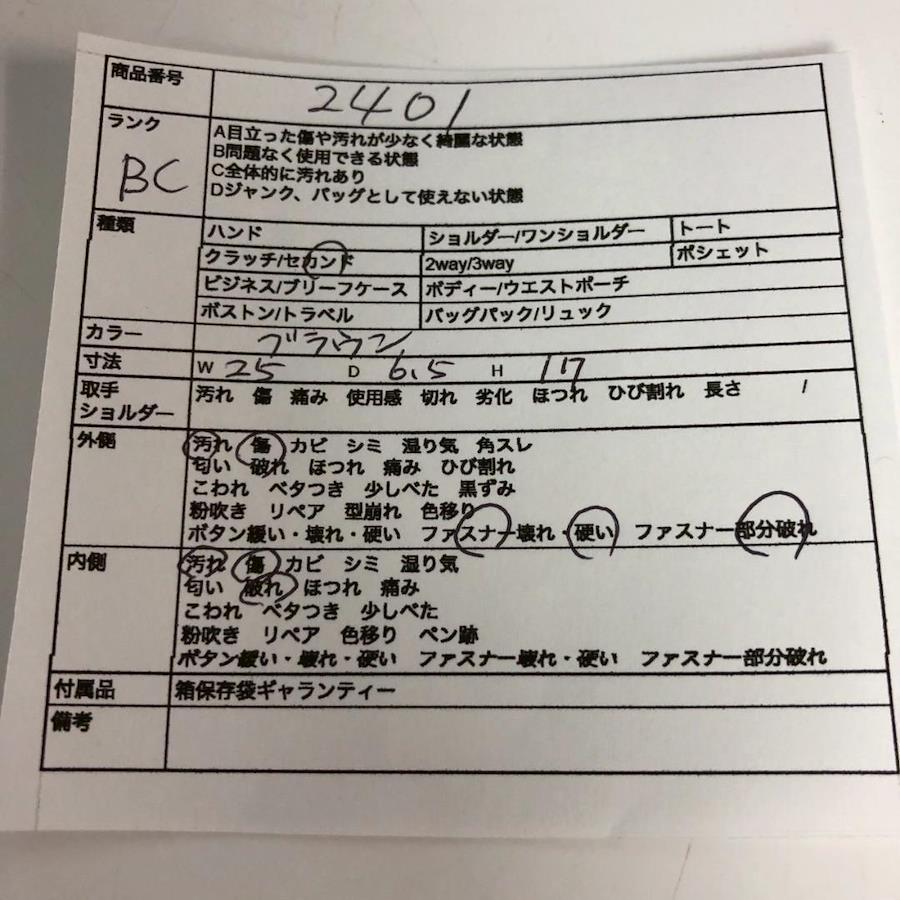 商品番号 2401
ランク BC
A目立った傷や汚れが少なく綺麗な状態
B問題なく使用できる状態
C全体的に汚れあり
Dジャンク、バッグとして使えない状態
種類 ハンド ショルダー/ワンショルダー トート
クラッチ/セカンド 2way/3way ポシェット
ビジネス/ブリーフケース ボディー/ウエストポーチ
ボストン/トラベル バッグパック/リュック
カラー ブラウン
寸法 W 25 D 6.5 H 17
取手 汚れ 傷 痛み 使用感 切れ 劣化 ほつれ ひび割れ 長さ /
ショルダー
外側 汚れ 傷 カビ シミ 湿り気 角スレ
匂い 破れ ほつれ 痛み ひび割れ
こわれ ベタつき 少しべた 黒ずみ
粉吹き リペア 型崩れ 色移り
ボタン緩い・壊れ・硬い ファスナー壊れ・硬い ファスナー部分破れ
内側 汚れ 傷 カビ シミ 湿り気
匂い 破れ ほつれ 痛み
こわれ ベタつき 少しべた
粉吹き リペア 色移り ペン跡
ボタン緩い・壊れ・硬い ファスナー壊れ・硬い ファスナー部分破れ
付属品 箱保存袋ギャランティー
備考